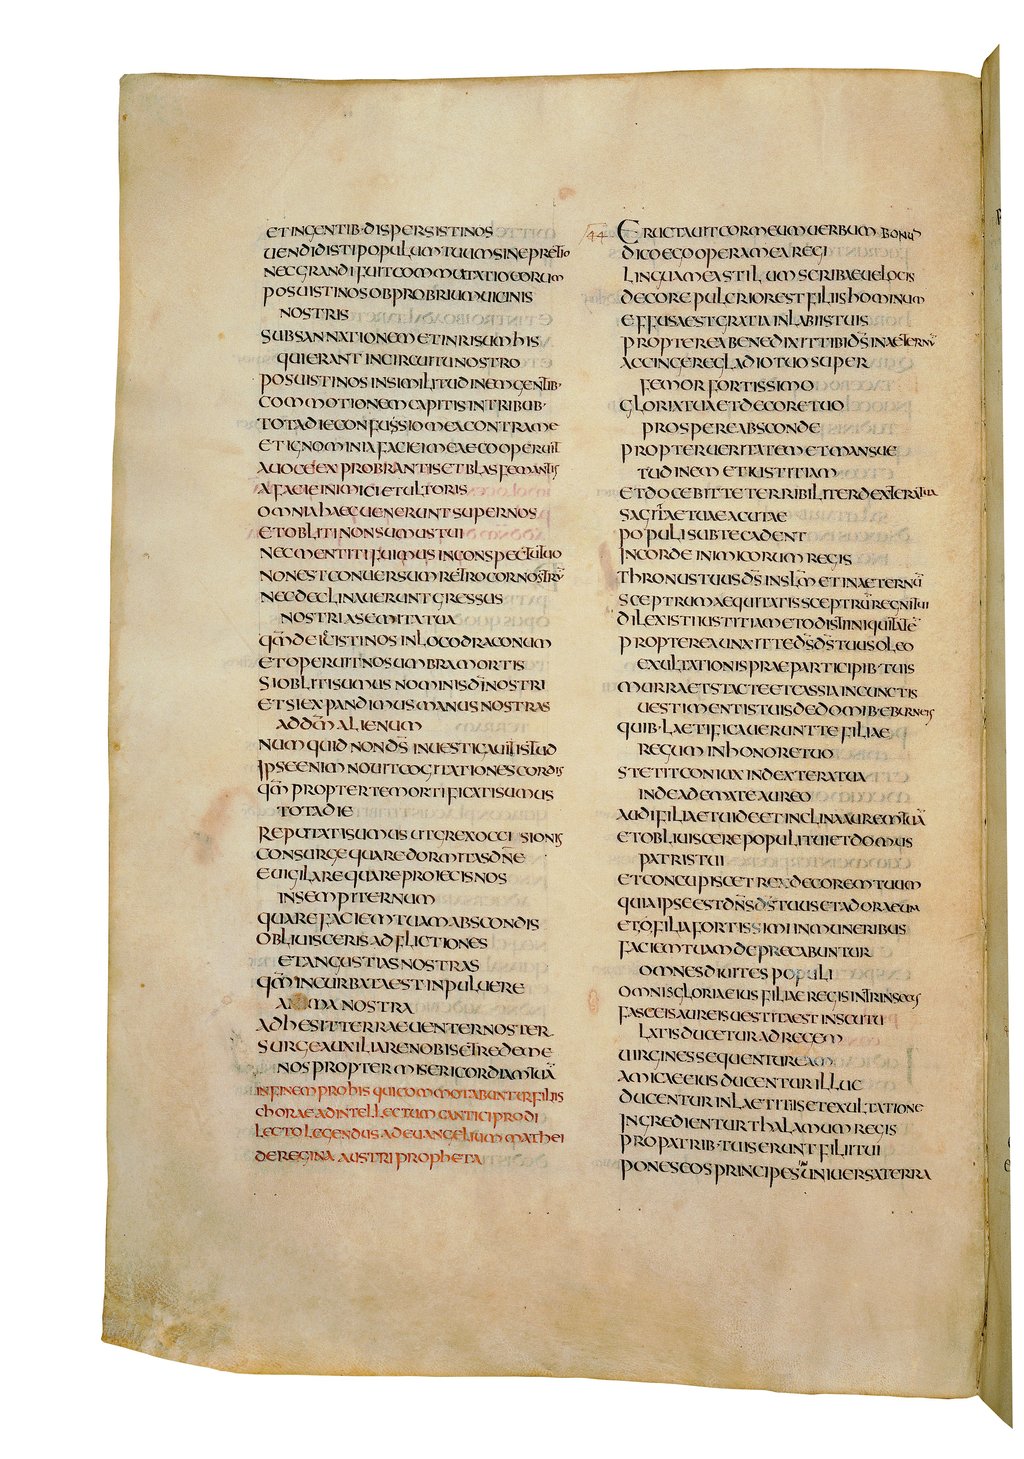 ET IN GENTIB· DISPERSISTI NOS
UENDIDISTI POPULUM TUUM SINE PRETIO
NEC GRANDI FUIT COMMUTATIO EORUM
POSUISTI NOS OBPROBRIUM UICINIS
NOSTRIS
SUBSANNATIONEM ET INRISUM HIS
QUI ERANT IN CIRCUITU NOSTRO
POSUISTI NOS IN SIMILITUDINEM GENTIB·
COMMOTIONEM CAPITIS IN TRIBUB·
TOTA DIE CONFUSSIO MEA CONTRA ME
ET IGNOMINIA FACIEI MEAE COOPERUIT
A UOCE EXPROBRANTIS ET BLASFEMANTIS
A FACIE INIMICI ET ULTORIS
OMNIA HAEC UENERUNT SUPER NOS
ET OBLITI NON SUMUS TUI
NEC MENTITI FUIMUS IN CONSPECTU TUO
NON EST CONUERSUM RETRO COR NOSTRŪ
NEC DECLINAUERUNT GRESSUS
NOSTRI A SEMITA TUA
QM̄ DEIECISTI NOS IN LOCO DRACONUM
ET OPERUIT NOS UMBRA MORTIS
SI OBLITI SUMUS NOMINIS DĪ NOSTRI
ET SI EXPANDIMUS MANUS NOSTRAS
AD DM̄ ALIENUM
NUMQUID NON DS̄ INUESTIGAUIT ISTUD
IPSE ENIM NOUIT COGITATIONES CORDIS
QM̄ PROPTER TE MORTIFICATI SUMUS
TOTA DIE
REPUTATI SUMUS UT GREX OCCISIONIS
CONSURGE QUARE DORMITAS DN̄E
EUIGILA RE QUARE PROIECIS NOS
IN SEMPITERNUM
QUARE FACIEM TUAM ABSCONDIS
OBLIUISCERIS ADFLICTIONES
ET ANGUSTIAS NOSTRAS
QM̄ INCURBATA EST IN PULUERE
ANIMA NOSTRA
ADHESIT TERRAE UENTER NOSTER
SURGE AUXILIARE NOBIS ET REDEME
NOS PROPTER MISERICORDIAM TUĀ
IN FINEM PRO HIS QUI COMMOTABUNTUR FILIIS
CHORAE AD INTELLECTUM CANTICI PRO DI
LECTO LEGENDUS AD EUANGELIUM MATHEI
DE REGINA AUSTRI PROPHETA
44 ERUCTAUIT COR MEUM UERBUM BONUM
DICO EGO OPERA MEA REGI
LINGUA MEA STILUM SCRIBAE UELOCIS
DECORE PULCRIOR EST FILIIS HOMINUM
EFFUSA EST GRATIA IN LABIIS TUIS
PROPTEREA BENEDIXIT TIBI DS̄ IN AETERNŪ
ACCINGERE GLADIO TUO SUPER
FEMOR FORTISSIMO
GLORIA TUA ET DECORE TUO
PROSPERE ABSCONDE
PROPTER UERITATEM ET MANSUE
TUDINEM ET IUSTITIAM
ET DOCEBIT TE TERRIBILITER DEXTERA TUA
SAGITTAE TUAE ACUTAE
POPULI SUB TE CADENT
IN CORDE INIMICORUM REGIS
THRONUS TUUS DS̄ IN SLM̄ ET IN AETERNŪ
SCEPTRUM AEQUITATIS SCEPTRŪ REGNI TUI
DILEXISTI IUSTITIAM ET ODISTI INIQUITATĒ
PROPTEREA UNXIT TE DS̄ DS̄ TUUS OLEO
EXULTATIONIS PRAE PARTICIPIB· TUIS
MURRA ET STACTE ET CASSIA IN CUNCTIS
UESTIMENTIS TUIS DE DOMIB· EBURNEIS
QUIB· LAETIFICAUERUNT TE FILIAE
REGUM IN HONORE TUO
STETIT CONIUX IN DEXTERA TUA
IN DEADEMATE AUREO
AUDI FILIA ET UIDE ET INCLINA AUREM TUĀ
ET OBLIUISCERE POPULI TUI ET DOMUS
PATRIS TUI
ET CONCUPISCET REX DECOREM TUUM
QUIA IPSE EST DN̄S DS̄ TUUS ET ADORA EUM
ET O FILIA FORTISSIMI IN MUNERIBUS
FACIEM TUAM DEPRECABUNTUR
OMNES DIUITES POPULI
OMNIS GLORIA EIUS FILIAE REGIS INTRINSECUS
FASCEIS AUREIS UESTITA EST IN SCUTU
LATIS DUCETUR AD REGEM
UIRGINES SEQUENTUR EAM
AMICAE EIUS DUCENTUR ILLUC
DUCENTUR IN LAETITIIS ET EXULTATIONE
INGREDIENTUR THALAMUM REGIS
PRO PATRIB· TUIS ERUNT FILII TUI
PONES EOS PRINCIPES IN UNIUERSA TERRA